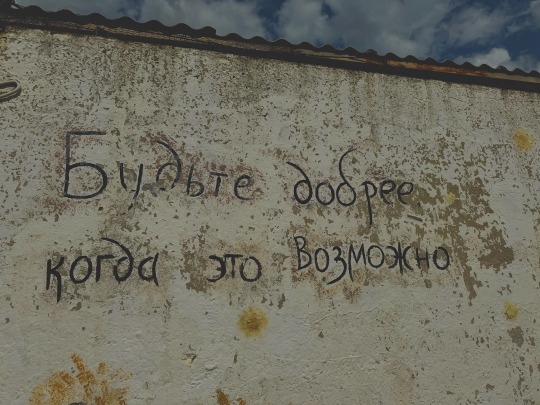 Будьте добрее
когда это возможно